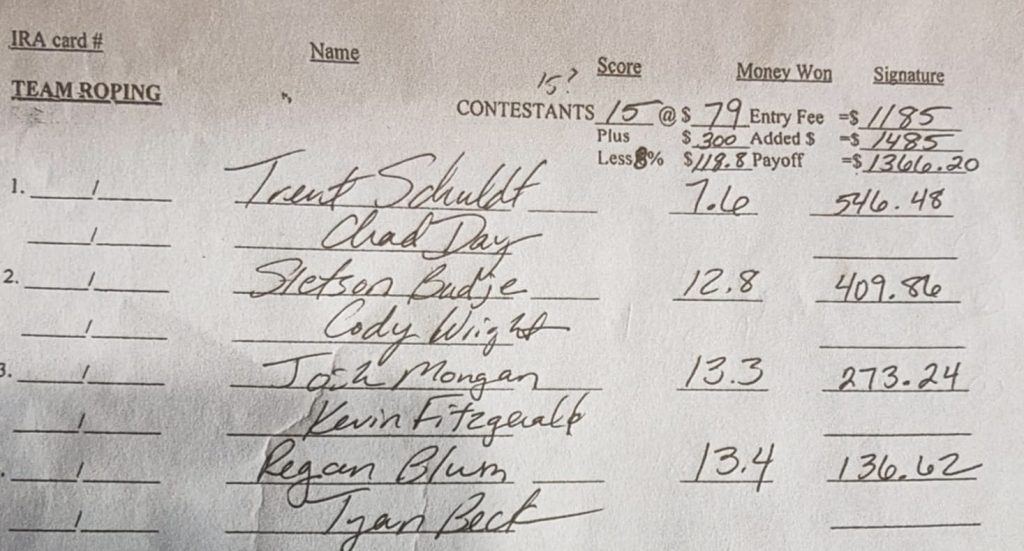 IRA card # Name Score Money Won Signature
15?
TEAM ROPING CONTESTANTS 15 @ $ 79 Entry Fee =$ 1185
Plus $ 300 Added $ =$ 1485
Less 8% $118.8 Payoff =$ 1366.20
1. / Trent Schuldt 7.6 546.48
/ Chad Day
2. / Stetson Budje 12.8 409.86
/ Cody Wright
3. / Mongan 13.3 273.24
/ Kevin Fitzgerald
. / Regan Blum 13.4 136.62
/ Tyan Beck